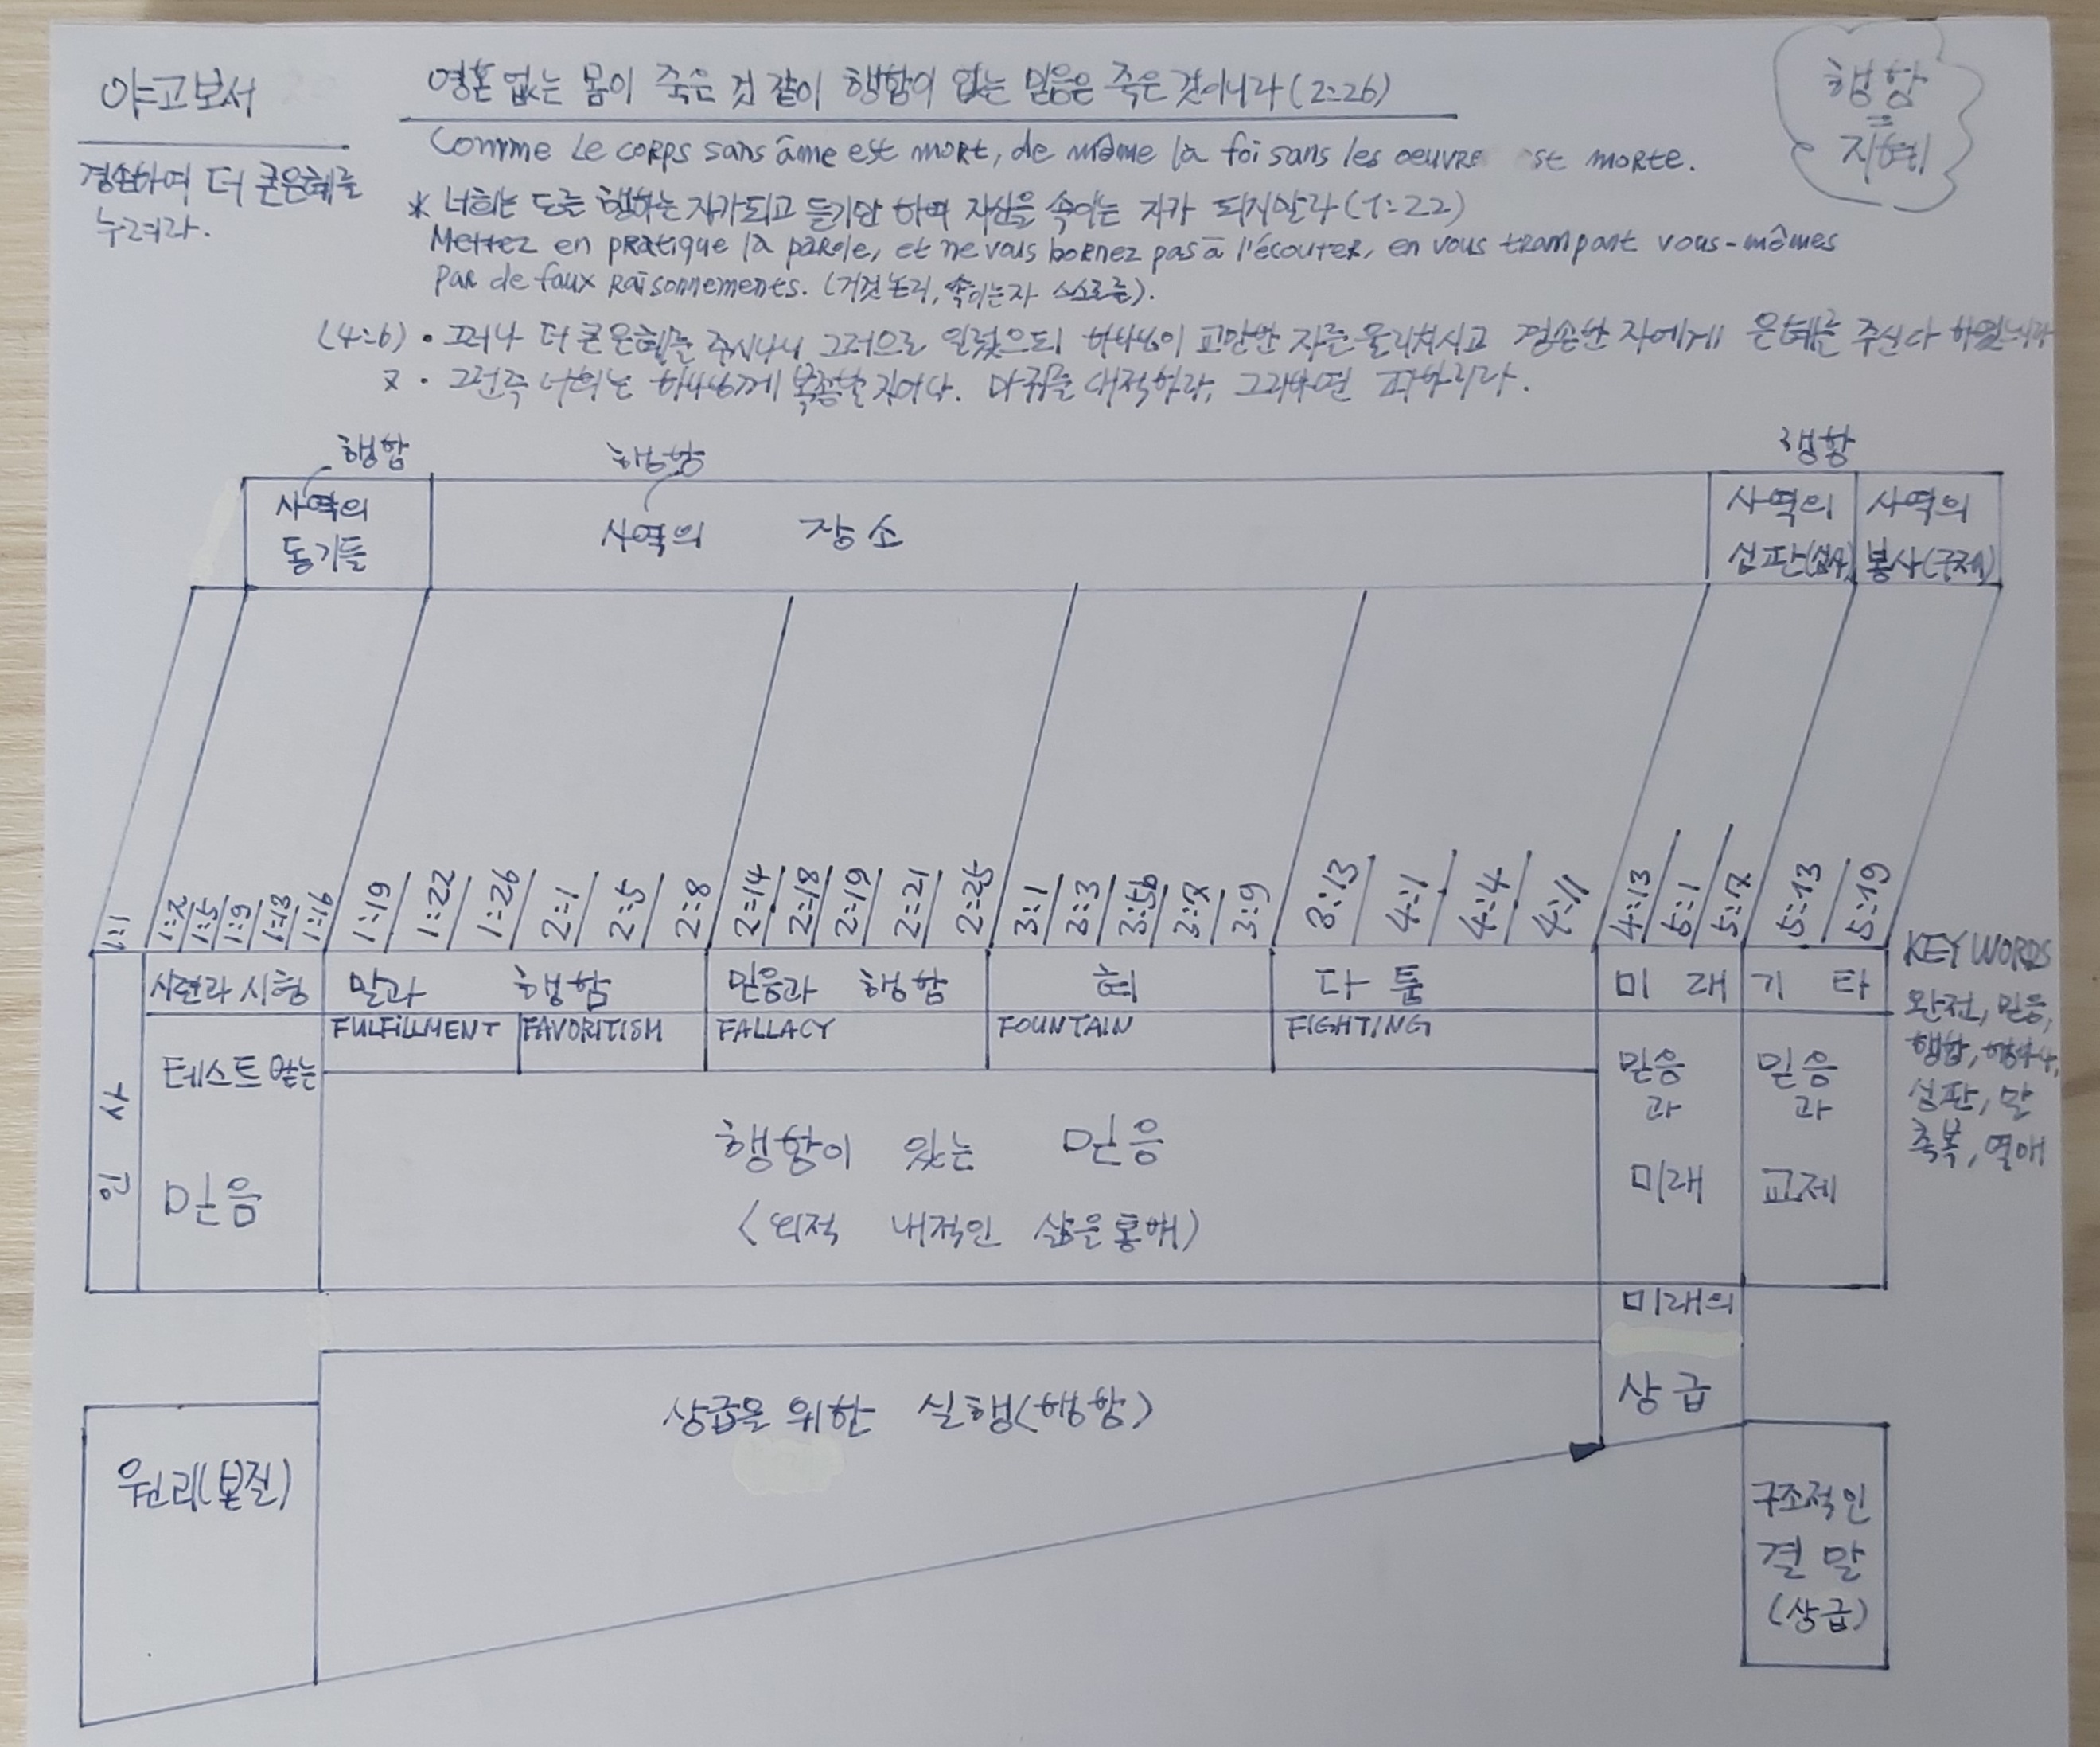 야고보서
겸손하여 더 큰은혜를
누려라.
영혼 없는 몸이 죽은 것 같이 행함이 없는 믿음은 죽은 것이니라 (2:26)
Comme Le corps sans âme est mort, de même la foi sans les oeuvre st morte.
행함
=
지혜
* 너희는 도를 행하는 자가되고 듣기만 하여 자신을 속이는 자가 되지말라 (1:22)
Mettez en pratique la parole, et ne vous bornez pas à l'écouter, en vous trompant vous-mêmes
par de faux raisonnements. (거짓 논리, 속이는자 스스로를).
(4:6) · 그러나 더 큰 은혜를 주시나니 그러므로 일렀으되 하나님이 교만한 자를 물리치시고 겸손한 자에게 은혜를 주신다 하였느니라
7 · 그런즉 너희는 하나님께 복종할지어다. 마귀를 대적하라, 그리하면 피하리라.
행함 행함 행함
사역의 동기들
사역의 장소
사역의 심판(심사)
사역의 봉사(구제)
1:1 1:2 1:5 1:9 1:13 1:16 1:19 1:22 1:26 2:1 2:5 2:8 2:14 2:18 2:19 2:21 2:25 3:1 3:3 3:5b 3:7 3:9 3:13 4:1 4:4 4:11 4:13 5:1 5:7 5:13 5:19
시련과 시험 말과 행함 믿음과 행함 혀 다툼 미래 기타
FULFILLMENT FAVORITISM FALLACY FOUNTAIN FIGHTING
서언
테스트 받는
믿음
행함이 있는 믿음
(외적 내적인 삶을통해)
믿음
과
미래
믿음
과
교제
KEY WORDS
완전, 믿음,
행함,
심판, 말
축복, 열매
미래의
상급
원리(본질)
상급을 위한 실행(행함)
구조적인
결말
(상급)